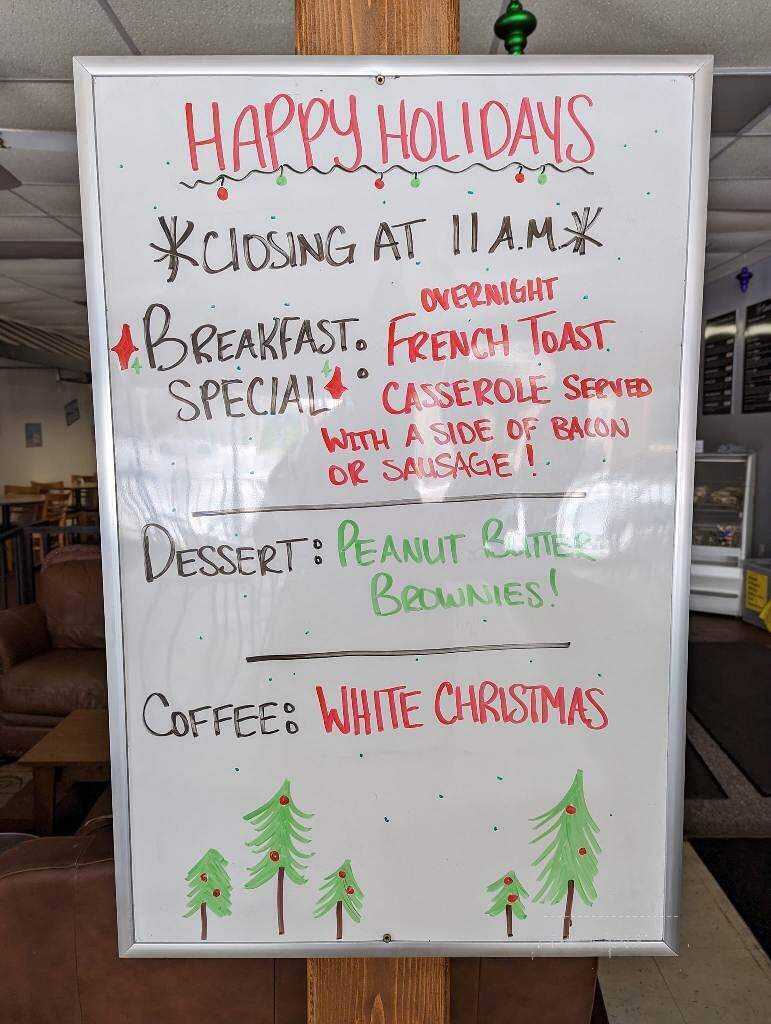 HAPPY HOLIDAYS
*CLOSING AT 11 A.M.*
BREAKFAST SPECIAL: OVERNIGHT
FRENCH TOAST
CASSEROLE SERVED
WITH A SIDE OF BACON
OR SAUSAGE!
DESSERT: PEANUT BUTTER
BROWNIES!
COFFEE: WHITE CHRISTMAS